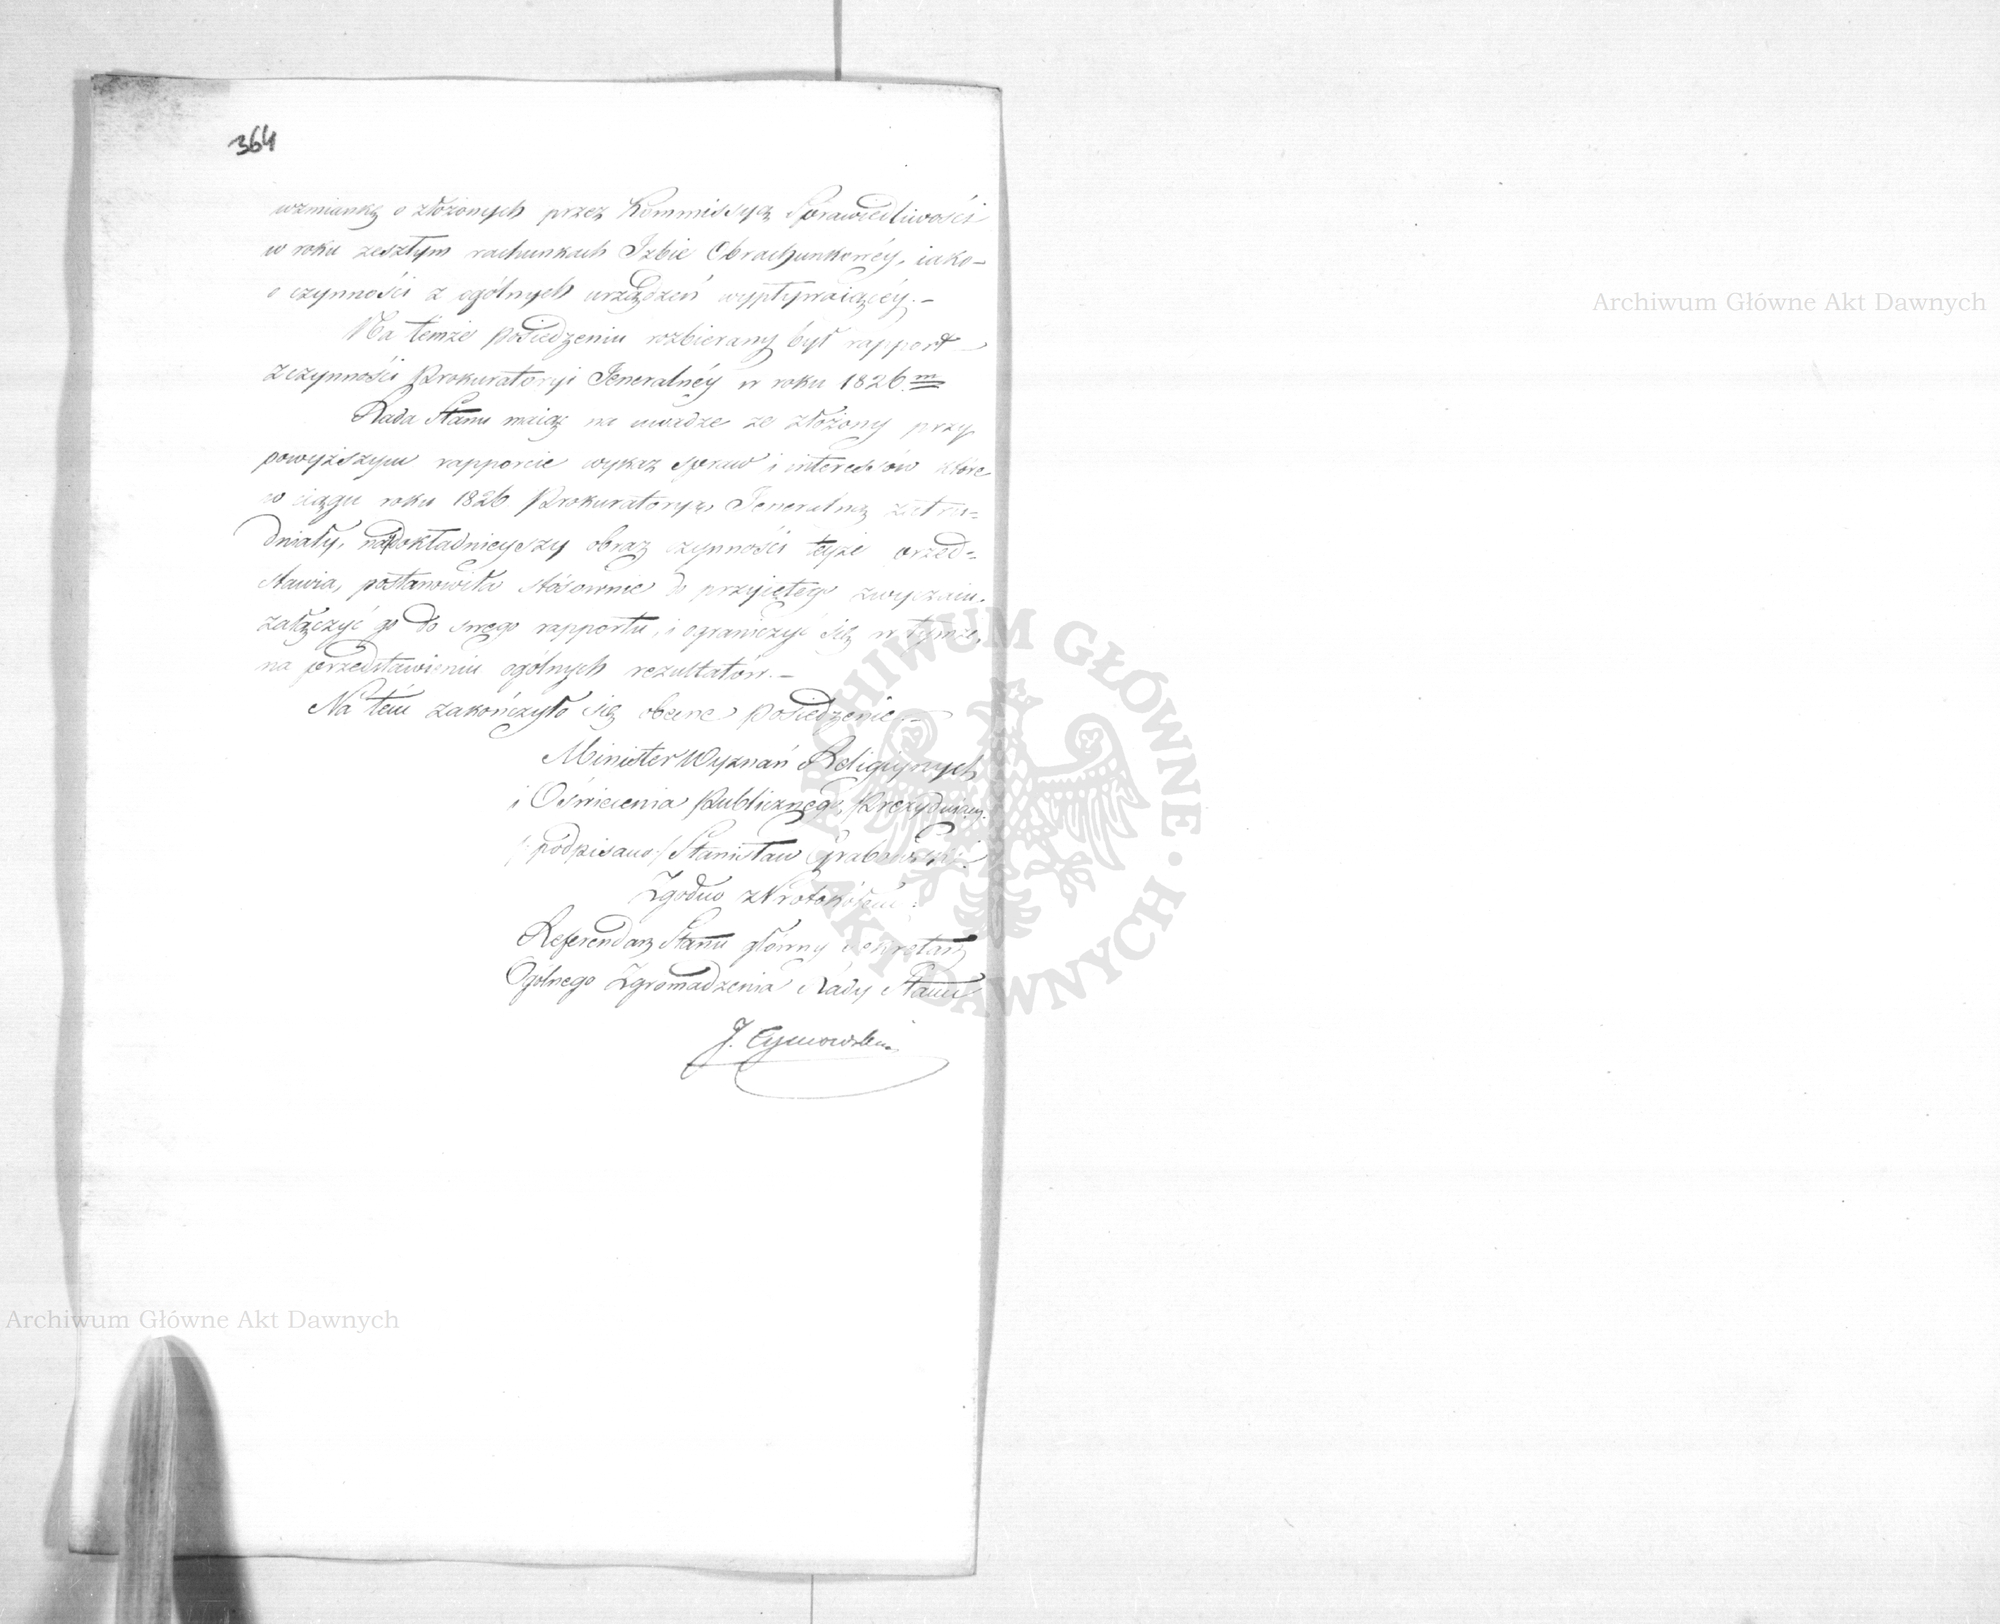 364
wzmiankę o złożonych przez Kommissyą Sprawiedliwości
w roku zeszłym rachunkach Izbie Obrachunkowéy, iako
o czynności z ogólnych urządzeń wypływaiącéy.—
Na temże posiedzeniu rozbierany był rapport
z czynności Prokuratoryi Jeneralnéy w roku 1826.m
Rada Stanu maiąc na uwadze że złożony przy
powyższym rapporcie wykaz spraw i interessów które
w ciągu roku 1826 Prokuratoryą Jeneralną zatru=
dniały, naydokładnieyszy obraz czynności teyże przed=
stawia, postanowiła stósownie do przyiętego zwyczaiu,
załączyć go do swego rapportu, i ograniczyć się w tymże,
na przedstawieniu ogólnych rezultatów.—
Na tém zakończyło się obecne posiedzenie.—
Minister Wyznań Religiynych
i Oświecenia Publicznego, Prezyduiący
/:podpisano:/ Stanisław Grabowski.
Zgodno z Protokółem:
Referendarz Stanu główny Sekretarz
Ogólnego Zgromadzenia Rady Stanu
J.
Archiwum Główne Akt Dawnych
Archiwum Główne Akt Dawnych
ARCHIWUM GŁÓWNE AKT DAWNYCH